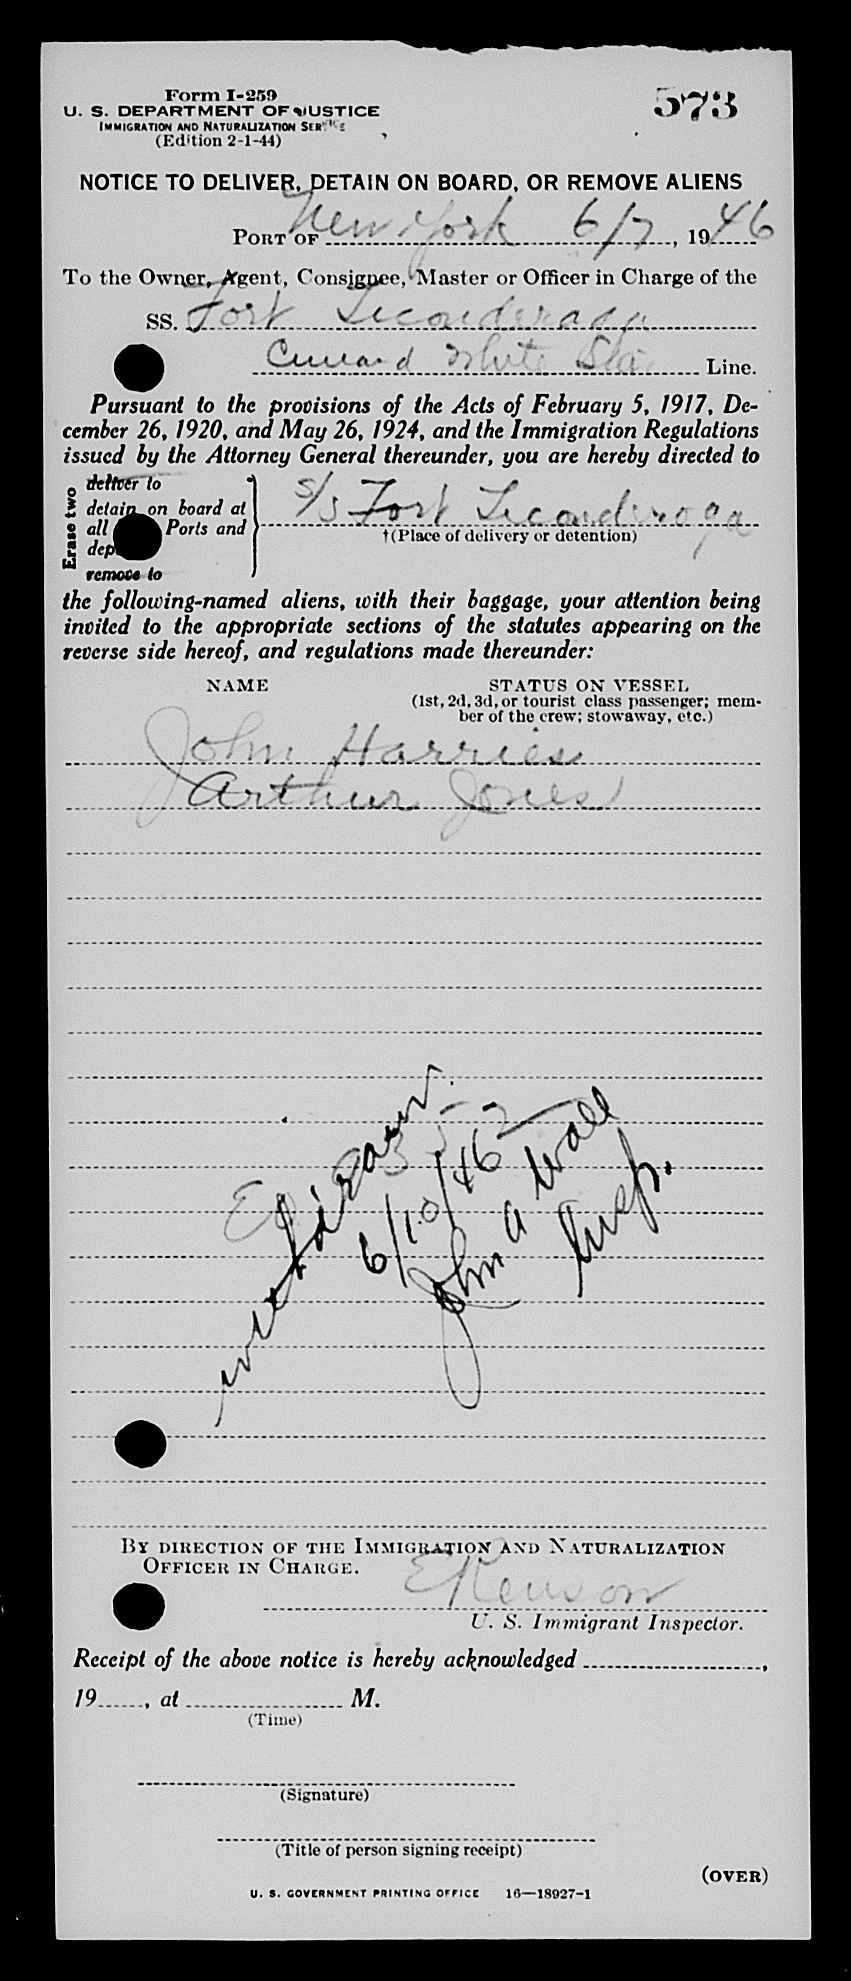 Form I-259
573
U. S. DEPARTMENT OF JUSTICE
IMMIGRATION AND NATURALIZATION SERVICE
(Edition 2-1-44)
NOTICE TO DELIVER, DETAIN ON BOARD, OR REMOVE ALIENS
PORT OF New York 6/7, 1946
To the Owner, Agent, Consignee, Master or Officer in Charge of the
SS. Fort Ticonderoga
Cunard White Star Line.
Pursuant to the provisions of the Acts of February 5, 1917, De-
cember 26, 1920, and May 26, 1924, and the Immigration Regulations
issued by the Attorney General thereunder, you are hereby directed to
Erase two
deliver to
detain on board at
all Ports and
dep
remove to
S/S Fort Ticonderoga
†(Place of delivery or detention)
the following-named aliens, with their baggage, your attention being
invited to the appropriate sections of the statutes appearing on the
reverse side hereof, and regulations made thereunder:
NAME
STATUS ON VESSEL
(1st, 2d, 3d, or tourist class passenger; mem-
ber of the crew; stowaway, etc.)
John Harries
Arthur Jones
withdrawn.
6/10/46
John A Wall
Insp.
BY DIRECTION OF THE IMMIGRATION AND NATURALIZATION
OFFICER IN CHARGE.
U. S. Immigrant Inspector.
Receipt of the above notice is hereby acknowledged ,
19 , at M.
(Time)
(Signature)
(Title of person signing receipt)
(OVER)
U. S. GOVERNMENT PRINTING OFFICE 16—18927-1